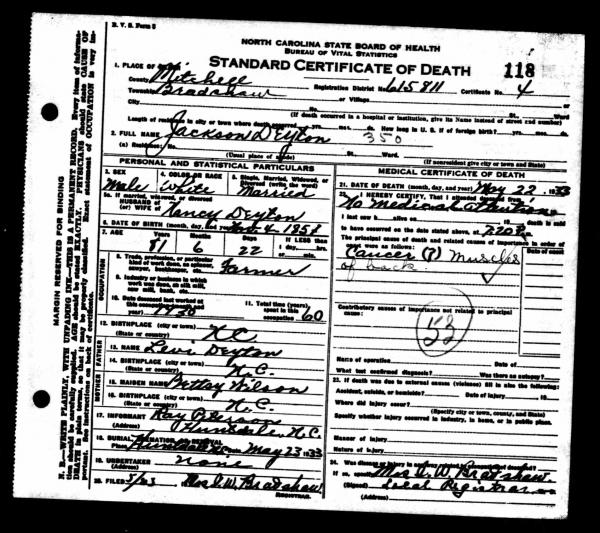 B. V. S. Form 8
NORTH CAROLINA STATE BOARD OF HEALTH
BUREAU OF VITAL STATISTICS
STANDARD CERTIFICATE OF DEATH
118
1. PLACE OF DEATH
County Mitchell
Registration District No. 615811 Certificate No. 4
Township Bradshaw or Village
City No. St. Ward
(If death occurred in a hospital or institution, give its Name instead of street and number)
Length of residence in city or town where death occurred yrs. mos. ds. How long in U. S. if of foreign birth? yrs. mos. ds.
2. FULL NAME Jackson Deyton 350
(a) Residence: No. St. Ward
(Usual place of abode) (If nonresident give city or town and State)
PERSONAL AND STATISTICAL PARTICULARS
3. SEX 4. COLOR OR RACE 5. Single, Married, Widowed, or Divorced (write the word)
Male White Married
5a. If married, widowed, or divorced
HUSBAND of
(or) WIFE of Nancy Deyton
6. DATE OF BIRTH (month, day, and year) Nov. 4 1858
7. AGE Years Months Days If LESS than 1 day, hrs. or min.
81 6 22
OCCUPATION
8. Trade, profession, or particular kind of work done, as spinner, sawyer, bookkeeper, etc. Farmer
9. Industry or business in which work was done, as silk mill, saw mill, bank, etc.
10. Date deceased last worked at this occupation (month and year) 1930
11. Total time (years) spent in this occupation 60
12. BIRTHPLACE (city or town)
(State or country) N C
FATHER
13. NAME Levi Deyton
14. BIRTHPLACE (city or town)
(State or country) N. C.
MOTHER
15. MAIDEN NAME Wilson
16. BIRTHPLACE (city or town)
(State or country) N. C.
17. INFORMANT Ray
(Address) N. C.
18. BURIAL, CREMATION, OR REMOVAL
Place Date May 23 1933
19. UNDERTAKER none
(Address)
20. FILED 5/23 Mrs. I. W. Bradshaw
REGISTRAR.
MEDICAL CERTIFICATE OF DEATH
21. DATE OF DEATH (month, day, and year) May 22, 1933
22. I HEREBY CERTIFY, That I attended deceased from
No Medical Attention
I last saw h alive on 19 death is said
to have occurred on the date stated above, at 220 P m.
The principal cause of death and related causes of importance in order of onset were as follows:
Date of onset
Cancer (?) Muscles
of back
Contributory causes of importance not related to principal cause:
53
Name of operation Date of
What test confirmed diagnosis? Was there an autopsy?
23. If death was due to external causes (violence) fill in also the following:
Accident, suicide, or homicide? Date of injury 19
Where did injury occur?
(Specify city or town, county, and State)
Specify whether injury occurred in industry, in home, or in public place
Manner of injury
Nature of injury
24. Was disease or injury in any way related to occupation of deceased?
If so, specify
(Signed) Mrs. I. W. Bradshaw
(Address) Local Registrar
MARGIN RESERVED FOR BINDING
N. B.—WRITE PLAINLY, WITH UNFADING INK—THIS IS A PERMANENT RECORD. Every item of information should be carefully supplied. AGE should be stated EXACTLY. PHYSICIANS should state CAUSE OF DEATH in plain terms, so that it may be properly classified. Exact statement of OCCUPATION is very important. See instructions on back of certificate.